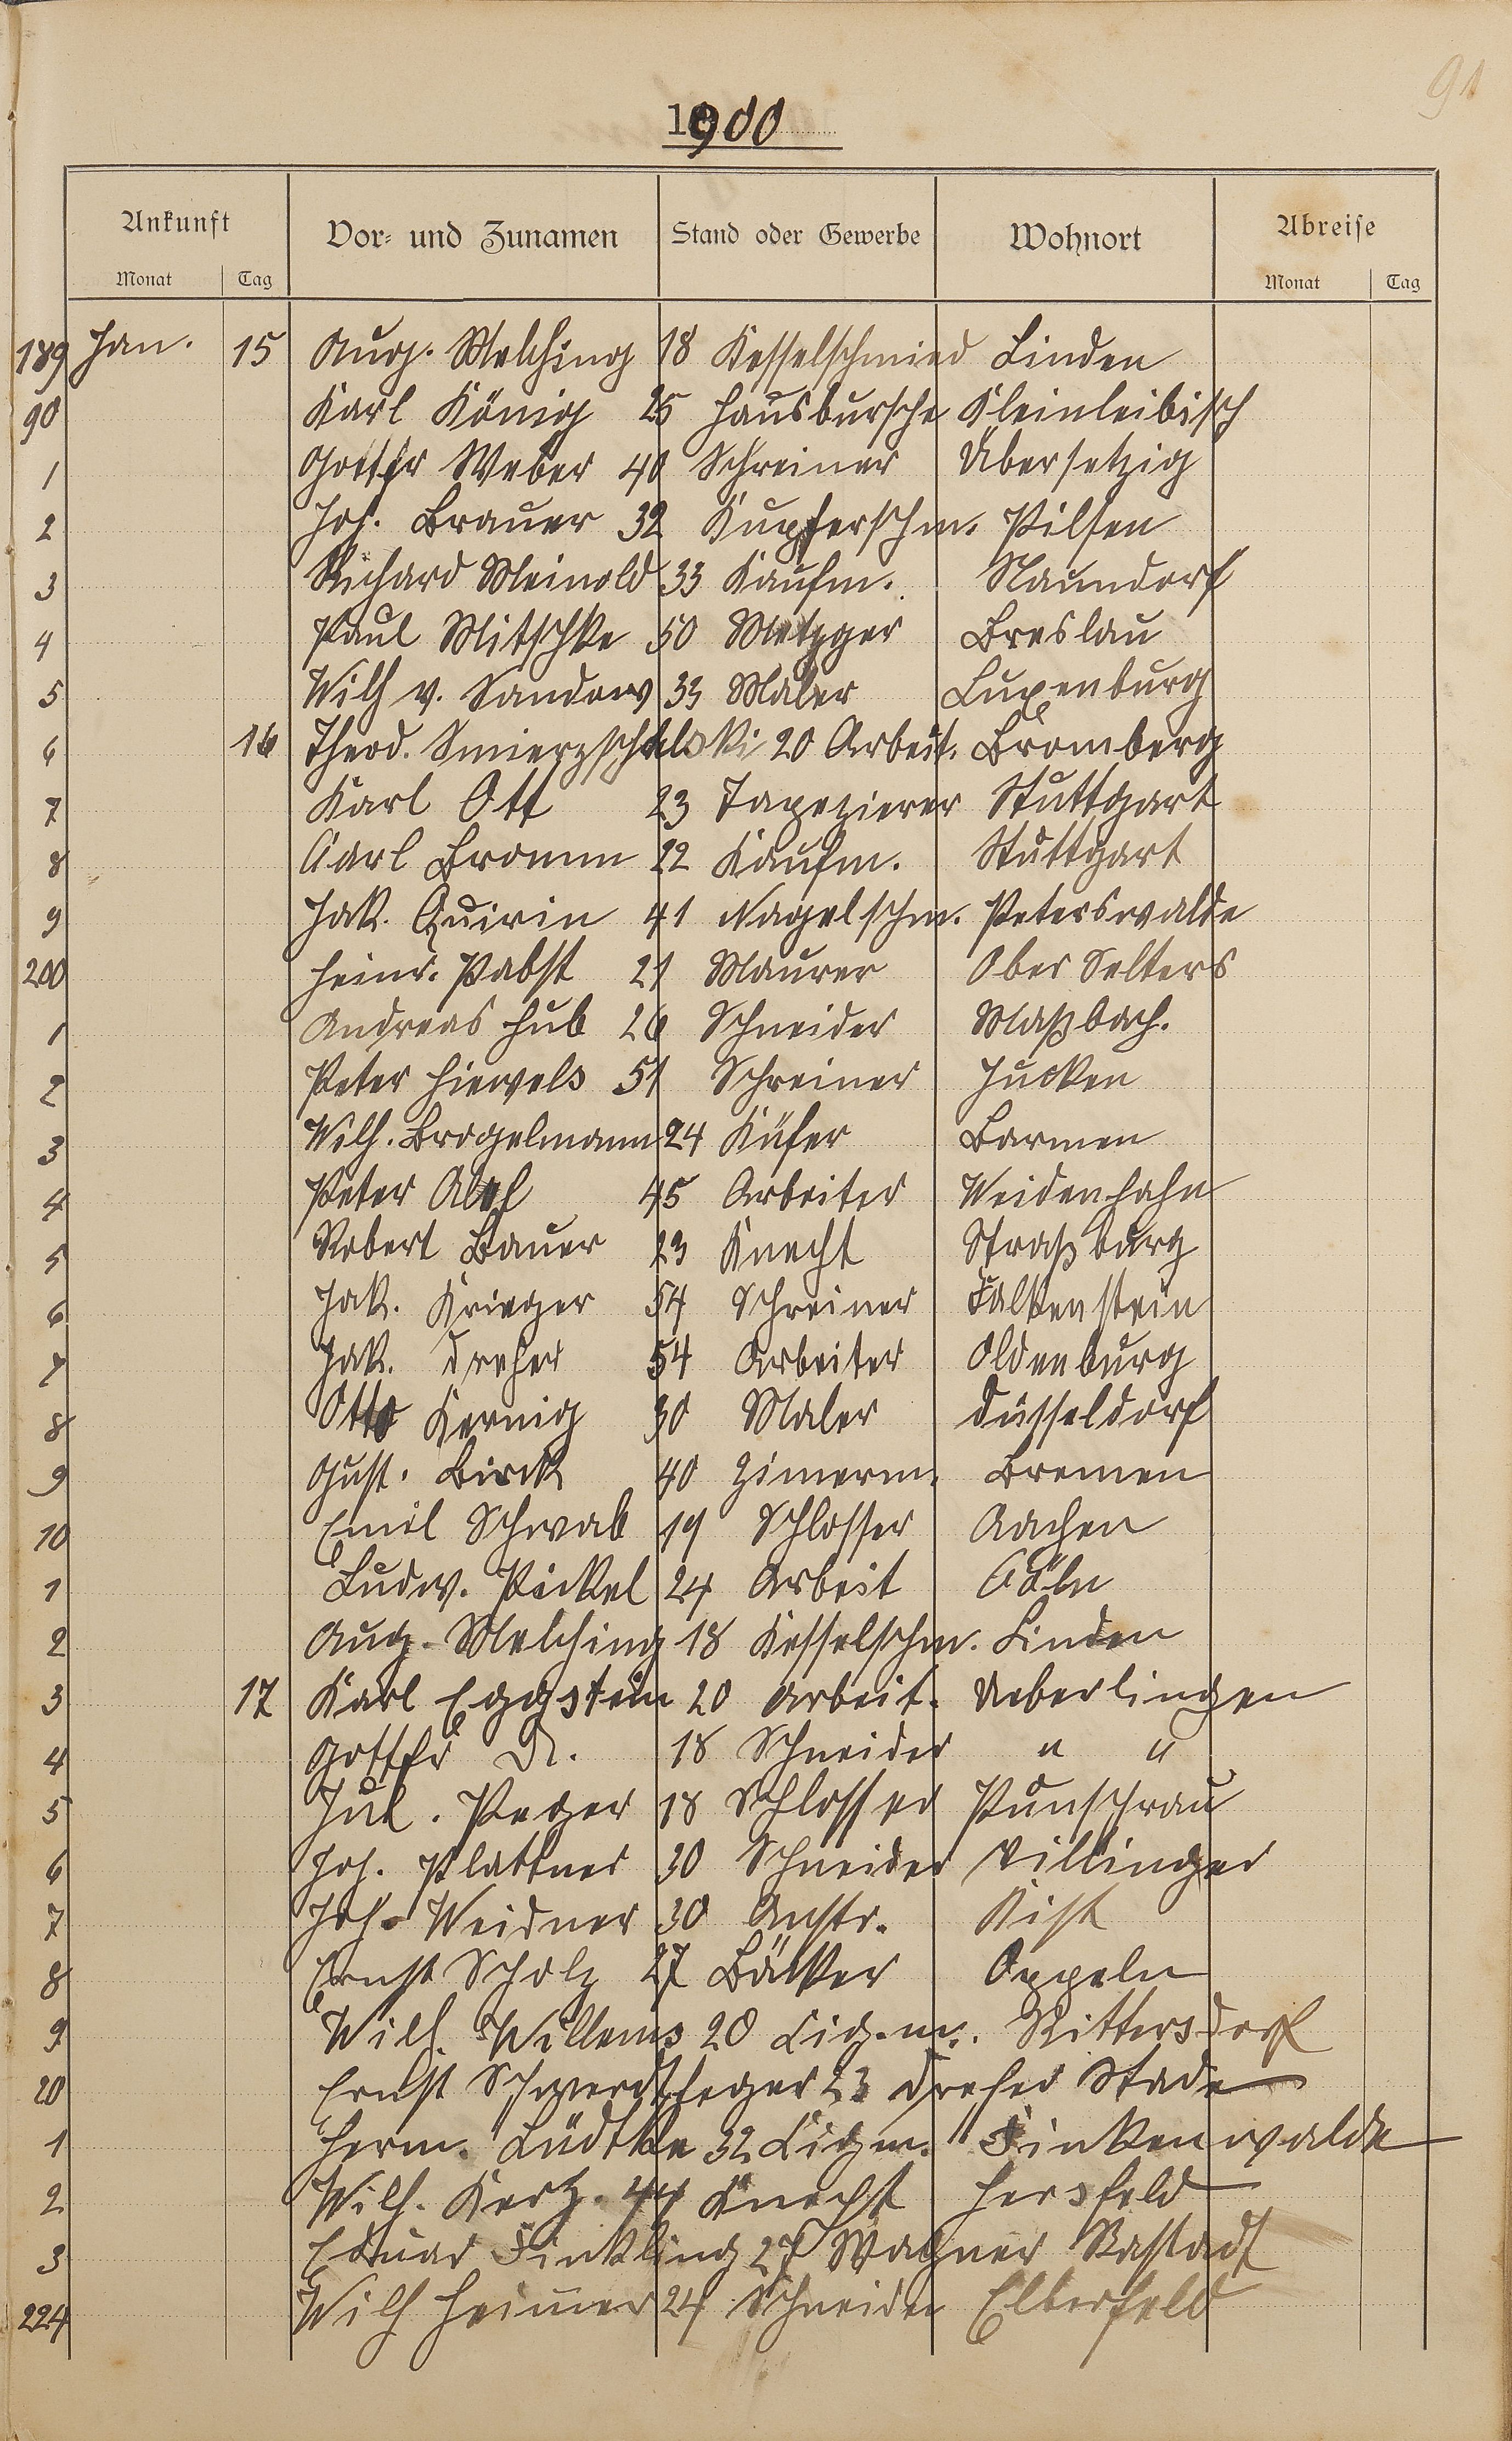 91
1900
Ankunft Vor- und Zunamen Stand oder Gewerbe Wohnort Abreise
Monat Tag Monat Tag
189 Jan. 15 Aug. Melching 18 Kesselschmied Linden
90 Karl König 25 Hausbursche Kleinleibisch
1 Gottfr Weber 40 Schreiner Übersetzig
2 Joh. Brauer 32 Kupferschm. Pilsen
3 Richard Meinold 33 Kaufm. Naundorf
4 Paul Mitschke 50 Metzger Breslau
5 Wilh v. Sandow 33 Maler Luxenburg
6 16 Theod. 20 Arbeit. Bromberg
7 Karl Ott 23 Tapezierer Stuttgart
8 Carl Bromm 22 Kaufm. Stuttgart
9 Jak. Quirin 41 Nagelschm. Peterswalde
200 Heinr. Pabst 21 Maurer Ober Selters
1 Andreas Hub 26 Schneider Maßbach.
2 Peter Hiewels 51 Schreiner Jucken
3 Wilh. Brogelmann 24 Küfer Barmen
4 Peter Abel 45 Arbeiter Weidenhahn
5 Robert Bauer 23 Knecht Straßburg
6 Jak. Krieger 54 Schreiner Falkenstein
7 Jak. Dreher 54 Arbeiter Oldenburg
8 Otto Kernig 30 Maler Düsseldorf
9 Gust. Birck 40 Zimerm. Bremen
10 Emil Schwab 19 Schlosser Aachen
1 Ludw. Pickel 24 Arbeit Cöln
2 Aug. Melching 18 Kesselschm. Linden
3 17 Karl Eggstein 20 Arbeit. Ueberlingen
4 Gottfr D. 18 Schneider " "
5 Jul. Peger 18 Schlosser Punschrau
6 Joh. Plattner 30 Schneider Villinger
7 Joh. Weidner 30 Anstr. Kist
8 Ernst Scholz 27 Bäcker Oppeln
9 Wilh. Willems 20 Cig.m. Rittersdorf
20 Ernst Schwerdtfeger 23 Dreher Stade
1 Herm. Lüdtke 32 Cigm. Finkenwalde
2 Wilh. Kertz. 44 Knecht Hersfeld
3 Eduar Finkling 27 Wagner Rastadt
224 Wilh Heimer 24 Schneider Elberfeld